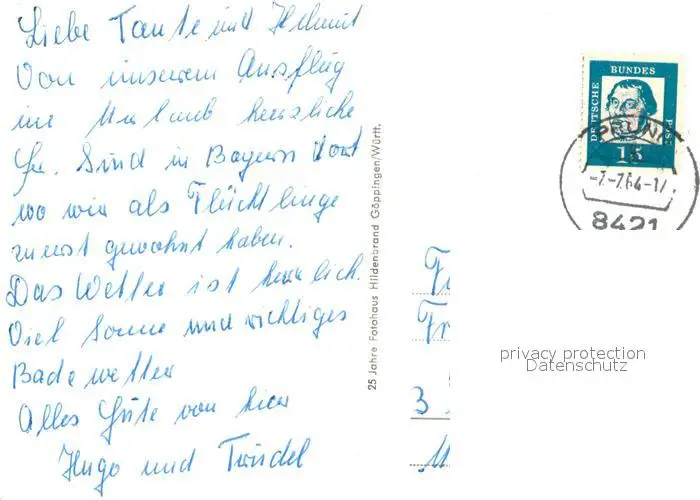 Liebe Tante und Helmut
Von unserem Ausflug
im Urlaub herzliche
Gr. Sind in Bayern dort
wo wir als Flüchtlinge
zuerst gewohnt haben.
Das Wetter ist herrlich.
Viel Sonne und richtiges
Badewetter
Alles Gute von hier
Hugo und Trudel
25 Jahre Fotohaus Hildenbrand Göppingen/Württ.
DEUTSCHE BUNDES POST
15
PRUNN
-7.-7.64-17
8421
3
privacy protection
Datenschutz